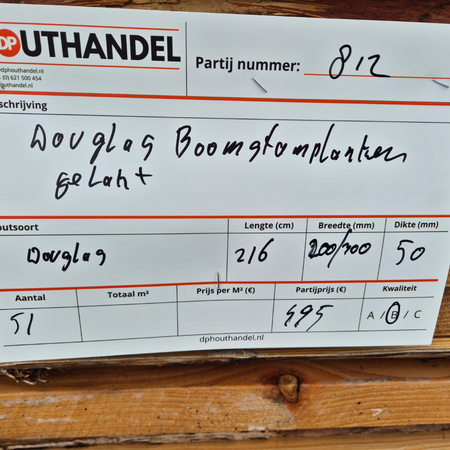 DP OUTHANDEL
dphouthandel.nl
(0) 621 500 454
outhandel.nl
Partij nummer: 812
schrijving
Douglas Boomstamplanken
gelakt
outsoort Lengte (cm) Breedte (mm) Dikte (mm)
Douglas 216 200/300 50
Aantal Totaal m² Prijs per M² (€) Partijprijs (€) Kwaliteit
51 495 A / B / C
dphouthandel.nl